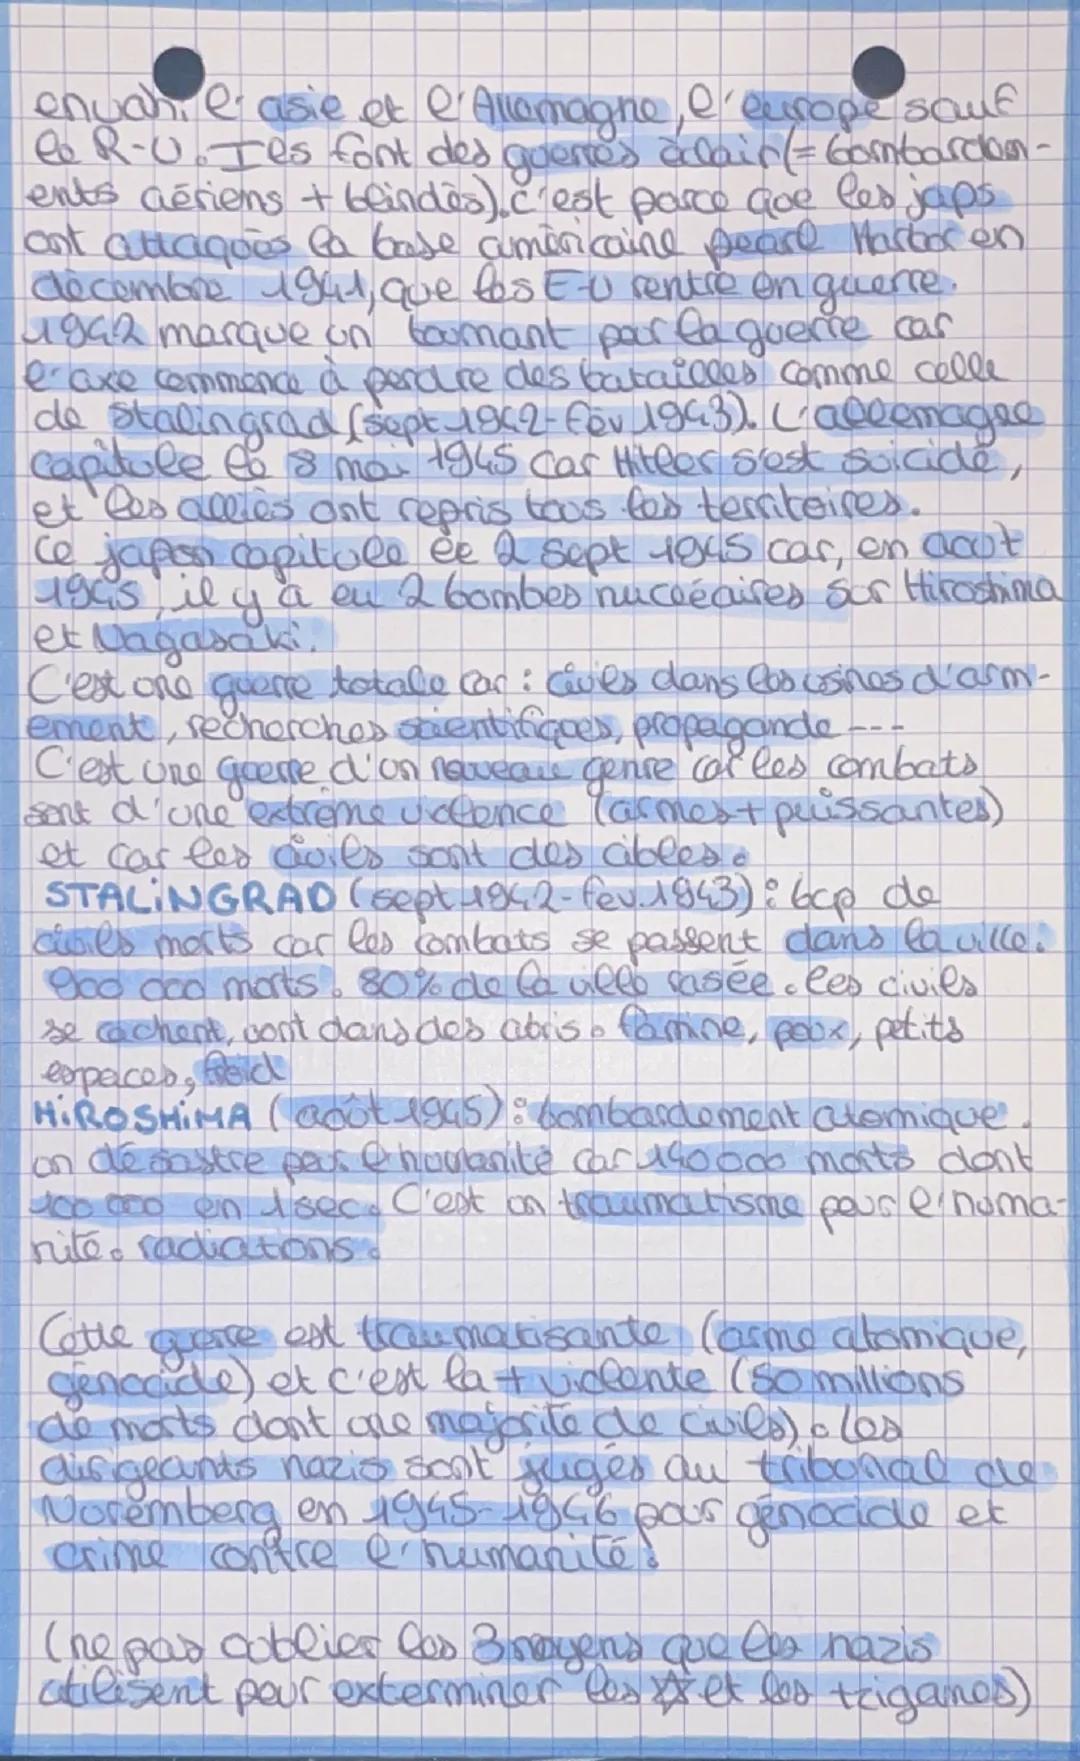 envahi l'asie et l'Allemagne, l'europe sauf
le R-U. Ils font des guerres éclair (= bombardem-
ents aériens + blindés). c'est parce que les japs
ont attaqués la base américaine pearl Harbor en
décembre 1941, que les E-U rentre en guerre.
1942 marque un tournant pour la guerre car
l'axe commence à perdre des batailles comme celle
de Stalingrad (sept 1942-fév 1943). L'allemagne
capitule le 8 mai 1945 car Hitler s'est suicidé,
et les alliés ont repris tous les territoires.
Le japon capitule le 2 sept 1945 car, en août
1945, il y a eu 2 bombes nucléaires sur Hiroshima
et Nagasaki.
C'est une guerre totale car : civils dans les usines d'arm-
ement, recherches scientifiques, propagande ---
C'est une guerre d'un nouveau genre car les combats
sont d'une extrême violence (armes + puissantes)
et car les civils sont des cibles.
STALiNGRAD (sept 1942-fev.1943) : bcp de
civils morts car les combats se passent dans la ville.
900 000 morts. 80% de la ville rasée. les civils
se cachent, vont dans des abris. famine, poux, petits
espaces, froid
HiROSHiMA (août 1945) : bombardement atomique.
un désastre pour l'humanité car 140 000 morts dont
100 000 en 1sec. C'est un traumatisme pour l'huma-
nité. radiations.
Cette guerre est traumatisante (arme atomique,
génocide) et c'est la + violente (50 millions
de morts dont une majorité de civils). les
dirigeants nazis sont jugés au tribunal de
Nuremberg en 1945-1946 pour génocide et
crime contre l'humanité.
(ne pas oublier les 3 moyens que les nazis
utilisent pour exterminer les ✡ et les tziganes)